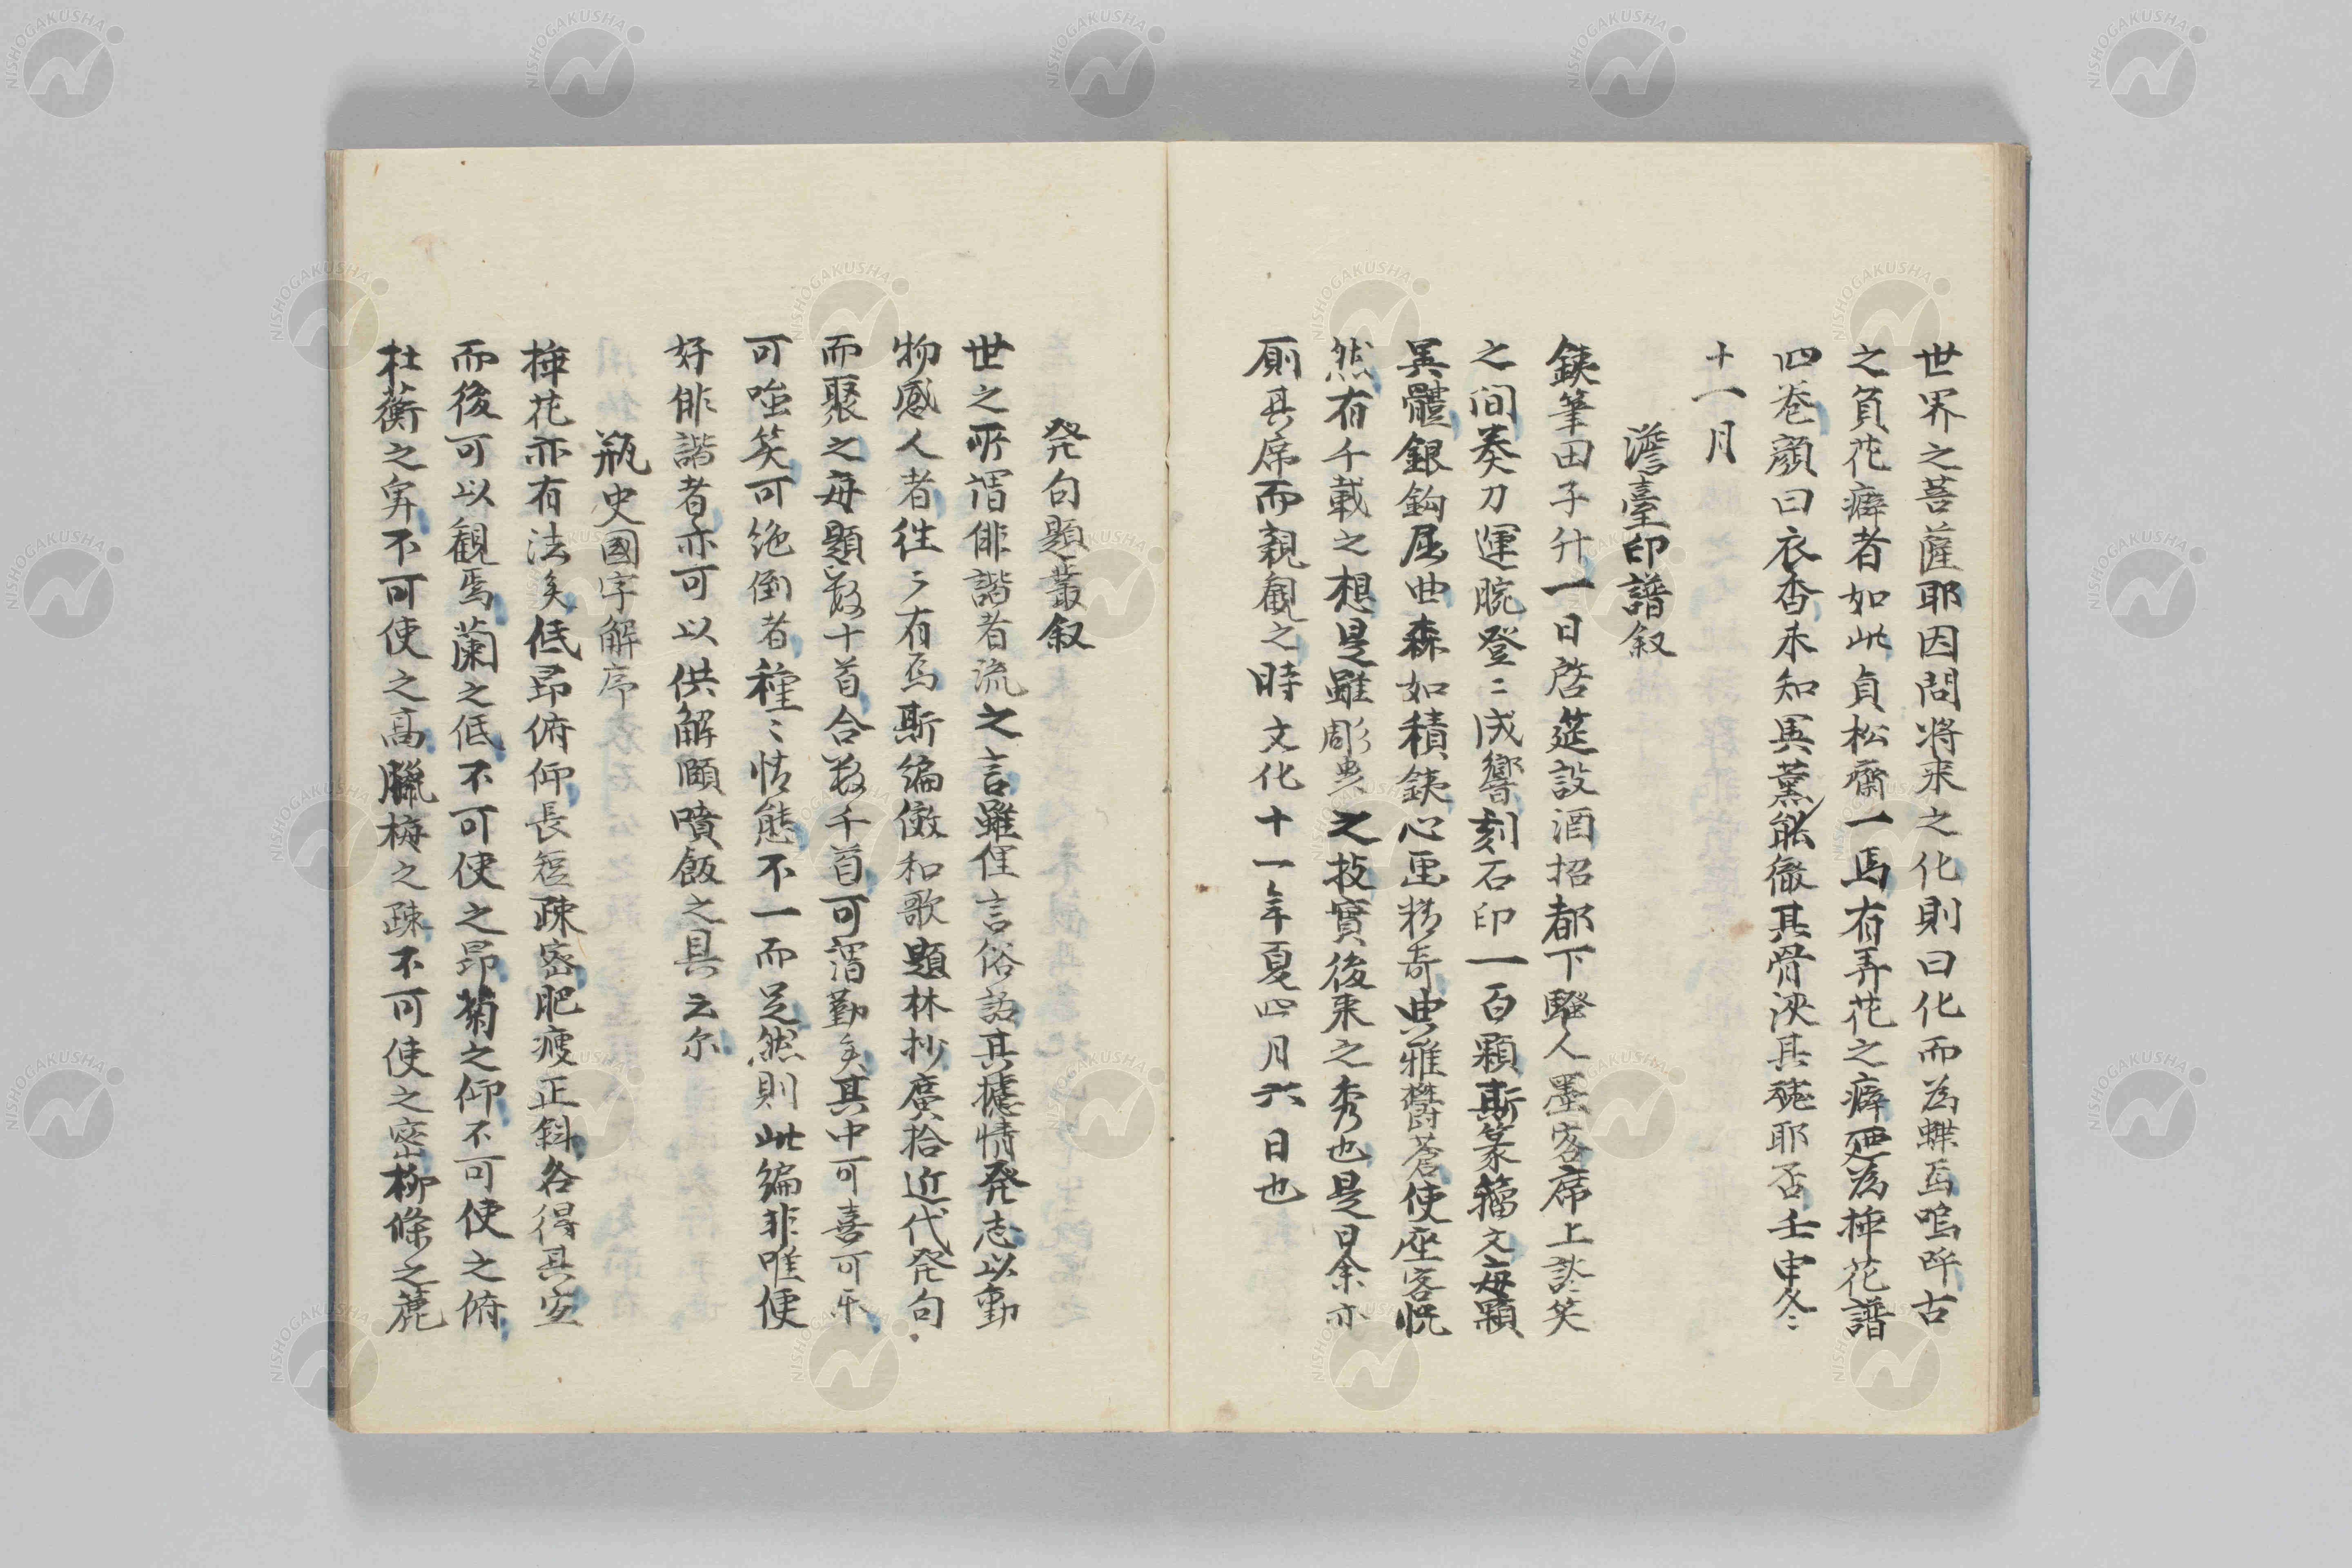 世界之菩薩耶因問将来之化則曰化而為蝶焉嗚呼古
之負花癖者如此貞松齋一馬有弄花之癖廼為挿花譜
四巻顔曰衣香未知其薫能徹其骨浹其魂耶否壬申冬〻
十一月
澹臺印譜叙
鐡筆田子升一日啓筵設酒招都下騒人墨客席上談笑
之间奏刀運腕登〻成響刻石印一百顆其篆籀文毎顆
異體銀鈎屈曲森如積鐡心画精奇典雅欝蒼使座客恍
然有千載之想是雖彫虫之技實後来之秀也是日余亦
厠其席而親観之時文化十一年夏四月六日也
発句題叢叙
世之所謂俳諧者流之言雖俚言俗語其攄情発志以動
物感人者往〻有焉斯編倣和歌題林抄廣拾近代発句
而聚之毎題数十首合数千首可謂勤矣其中可喜可乐
可咍笑可絶倒者種〻情態不一而足然則此編非唯使
好俳諧者亦可以供解頤噴飯之具云尓
瓶史國字解序
挿花亦有法矣低昂俯仰長短疎密肥痩正斜各得其宜
而後可以観焉蘭之低不可使之昂菊之仰不可使之俯
杜蘅之卑不可使之高臘梅之疎不可使之密柳條之麁
NISHOGAKUSHA